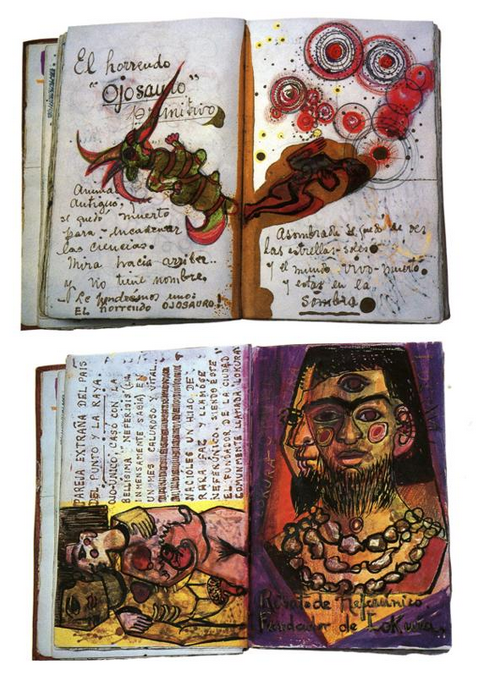 El horrendo
"Ojosauro"
primitivo
Animal
Antiguo,
se quedó muerto
para encadenar
las ciencias.
Mira hacia arriba..
y no tiene nombre.
Le pondremos uno:
EL horrendo OJOSAURO!
Asombrada se quedó de ver
las estrellas-soles
y el mundo vivo-muerto
y estar en la
sombra
PAREJA EXTRAÑA DEL PAIS
DEL PUNTO Y LA RAYA.
OJO-UNICO CASÓ CON LA
BELLÍSIMA "NEFERISIS" (LA
INMENSAMENTE SABIA) EN
UN MES CALUROSO Y VITAL..
NACIOLES UN HIJO DE
RARA FAZ Y LLAMÓSE
NEFERÚNICO, SIENDO ESTE
EL FUNDADOR DE LA CIUDAD
COMUNMENTE LLAMADA LOKURA
LOKURA
Retrato de Neferúnico
Fundador de Lokura.